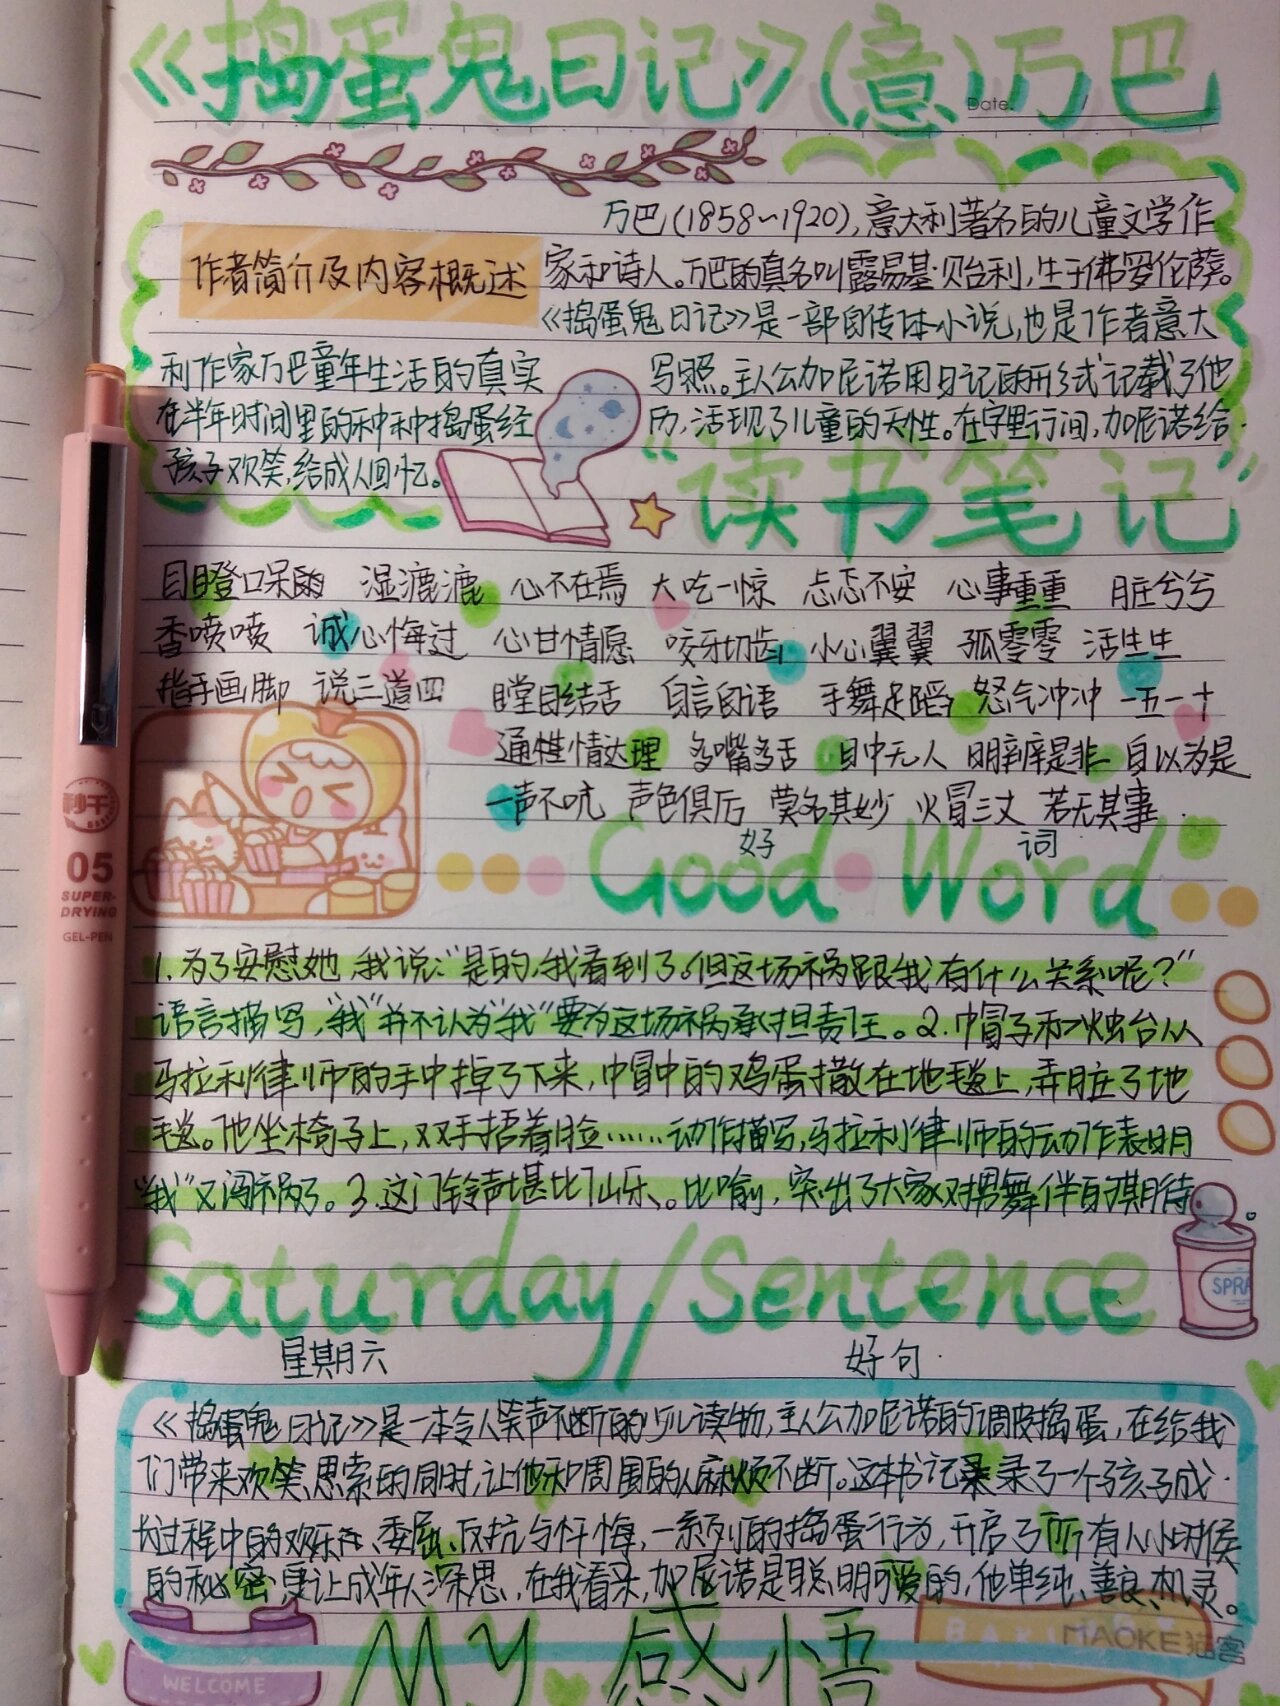 《捣蛋鬼日记》(意)万巴
Date.
万巴(1858~1920),意大利著名的儿童文学作
作者简介及内容概述
家和诗人。万巴的真名叫露易基·贝台利,生于佛罗伦萨。
《捣蛋鬼日记》是一部自传体小说,也是作者意大
利作家万巴童年生活的真实写照。主人公加尼诺用日记的形式记载了他
在半年时间里的种种捣蛋经历,活现了儿童的天性。在字里行间,加尼诺给
孩子欢笑,给成人回忆。
“读书笔记”
目瞪口呆 湿漉漉 心不在焉 大吃一惊 忐忑不安 心事重重 脏兮兮
香喷喷 诚心悔过 心甘情愿 咬牙切齿 小心翼翼 孤零零 活生生
指手画脚 说三道四 瞠目结舌 自言自语 手舞足蹈 怒气冲冲 一五一十
通情达理 多嘴多舌 目中无人 明辨是非 自以为是
一声不吭 声色俱厉 莫名其妙 火冒三丈 若无其事
好 词
Good Word
1.为了安慰她,我说:“是的,我看到了。但这场祸跟我有什么关系呢?”
语言描写,“我”并不认为“我”要为这场祸承担责任。2.帽子和烛台从
马拉利律师的手中掉了下来,帽中的鸡蛋撒在地毯上,弄脏了地
毯。他坐椅子上,双手捂着脸……动作描写,马拉利律师的动作表明
“我”又闯祸了。3.这门铃声堪比仙乐。比喻,突出了大家对男舞伴的期待。
SPRA
Saturday/Sentence
星期六 好句
《捣蛋鬼日记》是一本令人笑声不断的少儿读物,主人公加尼诺的调皮捣蛋,在给我
们带来欢笑、思索的同时,让他和周围的人麻烦不断。这本书记录了一个孩子成
长过程中的欢乐、委屈、反抗与忏悔,一系列的捣蛋行为,开启了所有人小时候
的秘密,更让成年人深思,在我看来,加尼诺是聪明可爱的,他单纯、善良、机灵。
MY 感悟
WELCOME
MAOKE猫客
秒干
05
SUPER-
DRYING
GEL-PEN